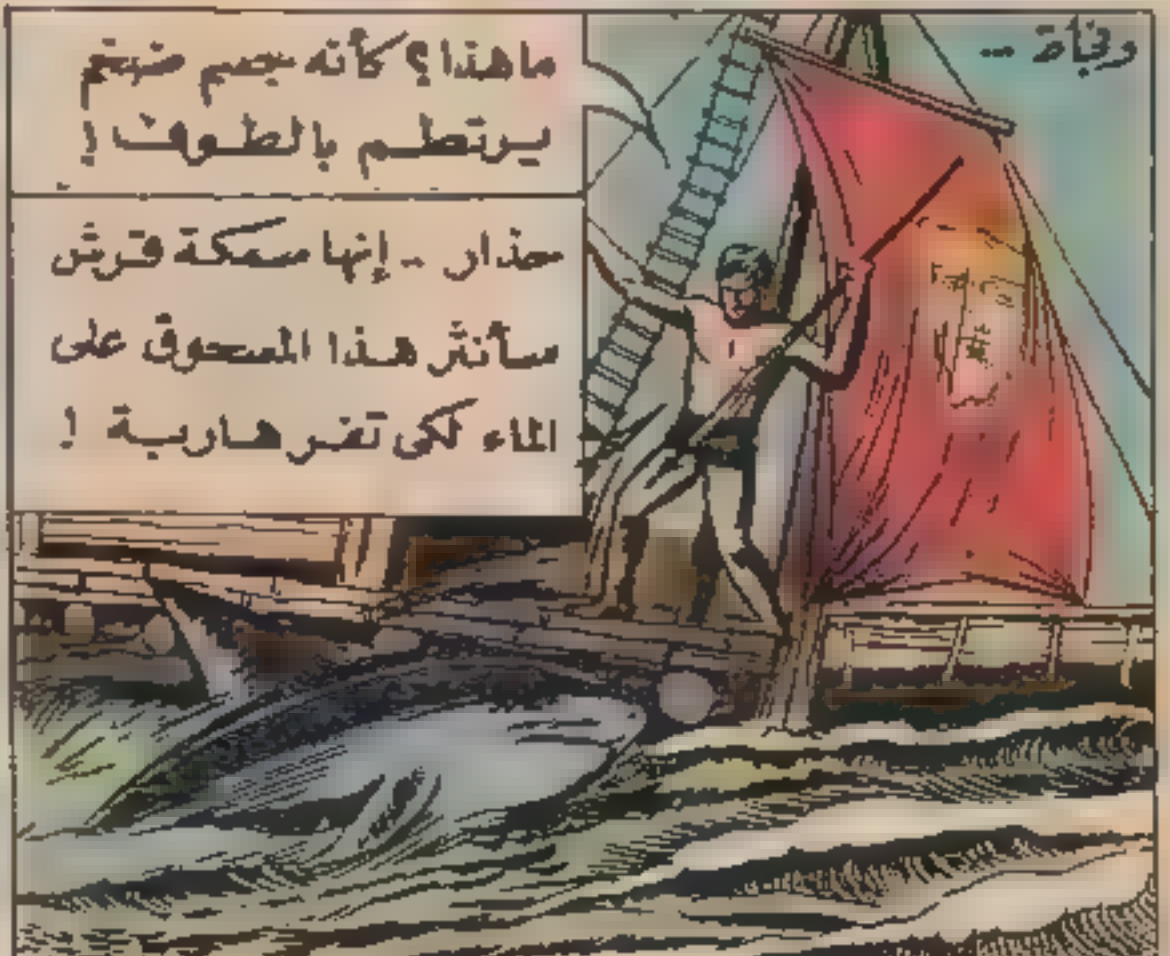 وفجأة --
ماهذا؟ كأنه جسم ضخم
يرتطم بالطوف !
حذار -- إنها سمكة قرش
سأنثر هذا المسحوق على
الماء لكى تفر هاربة !